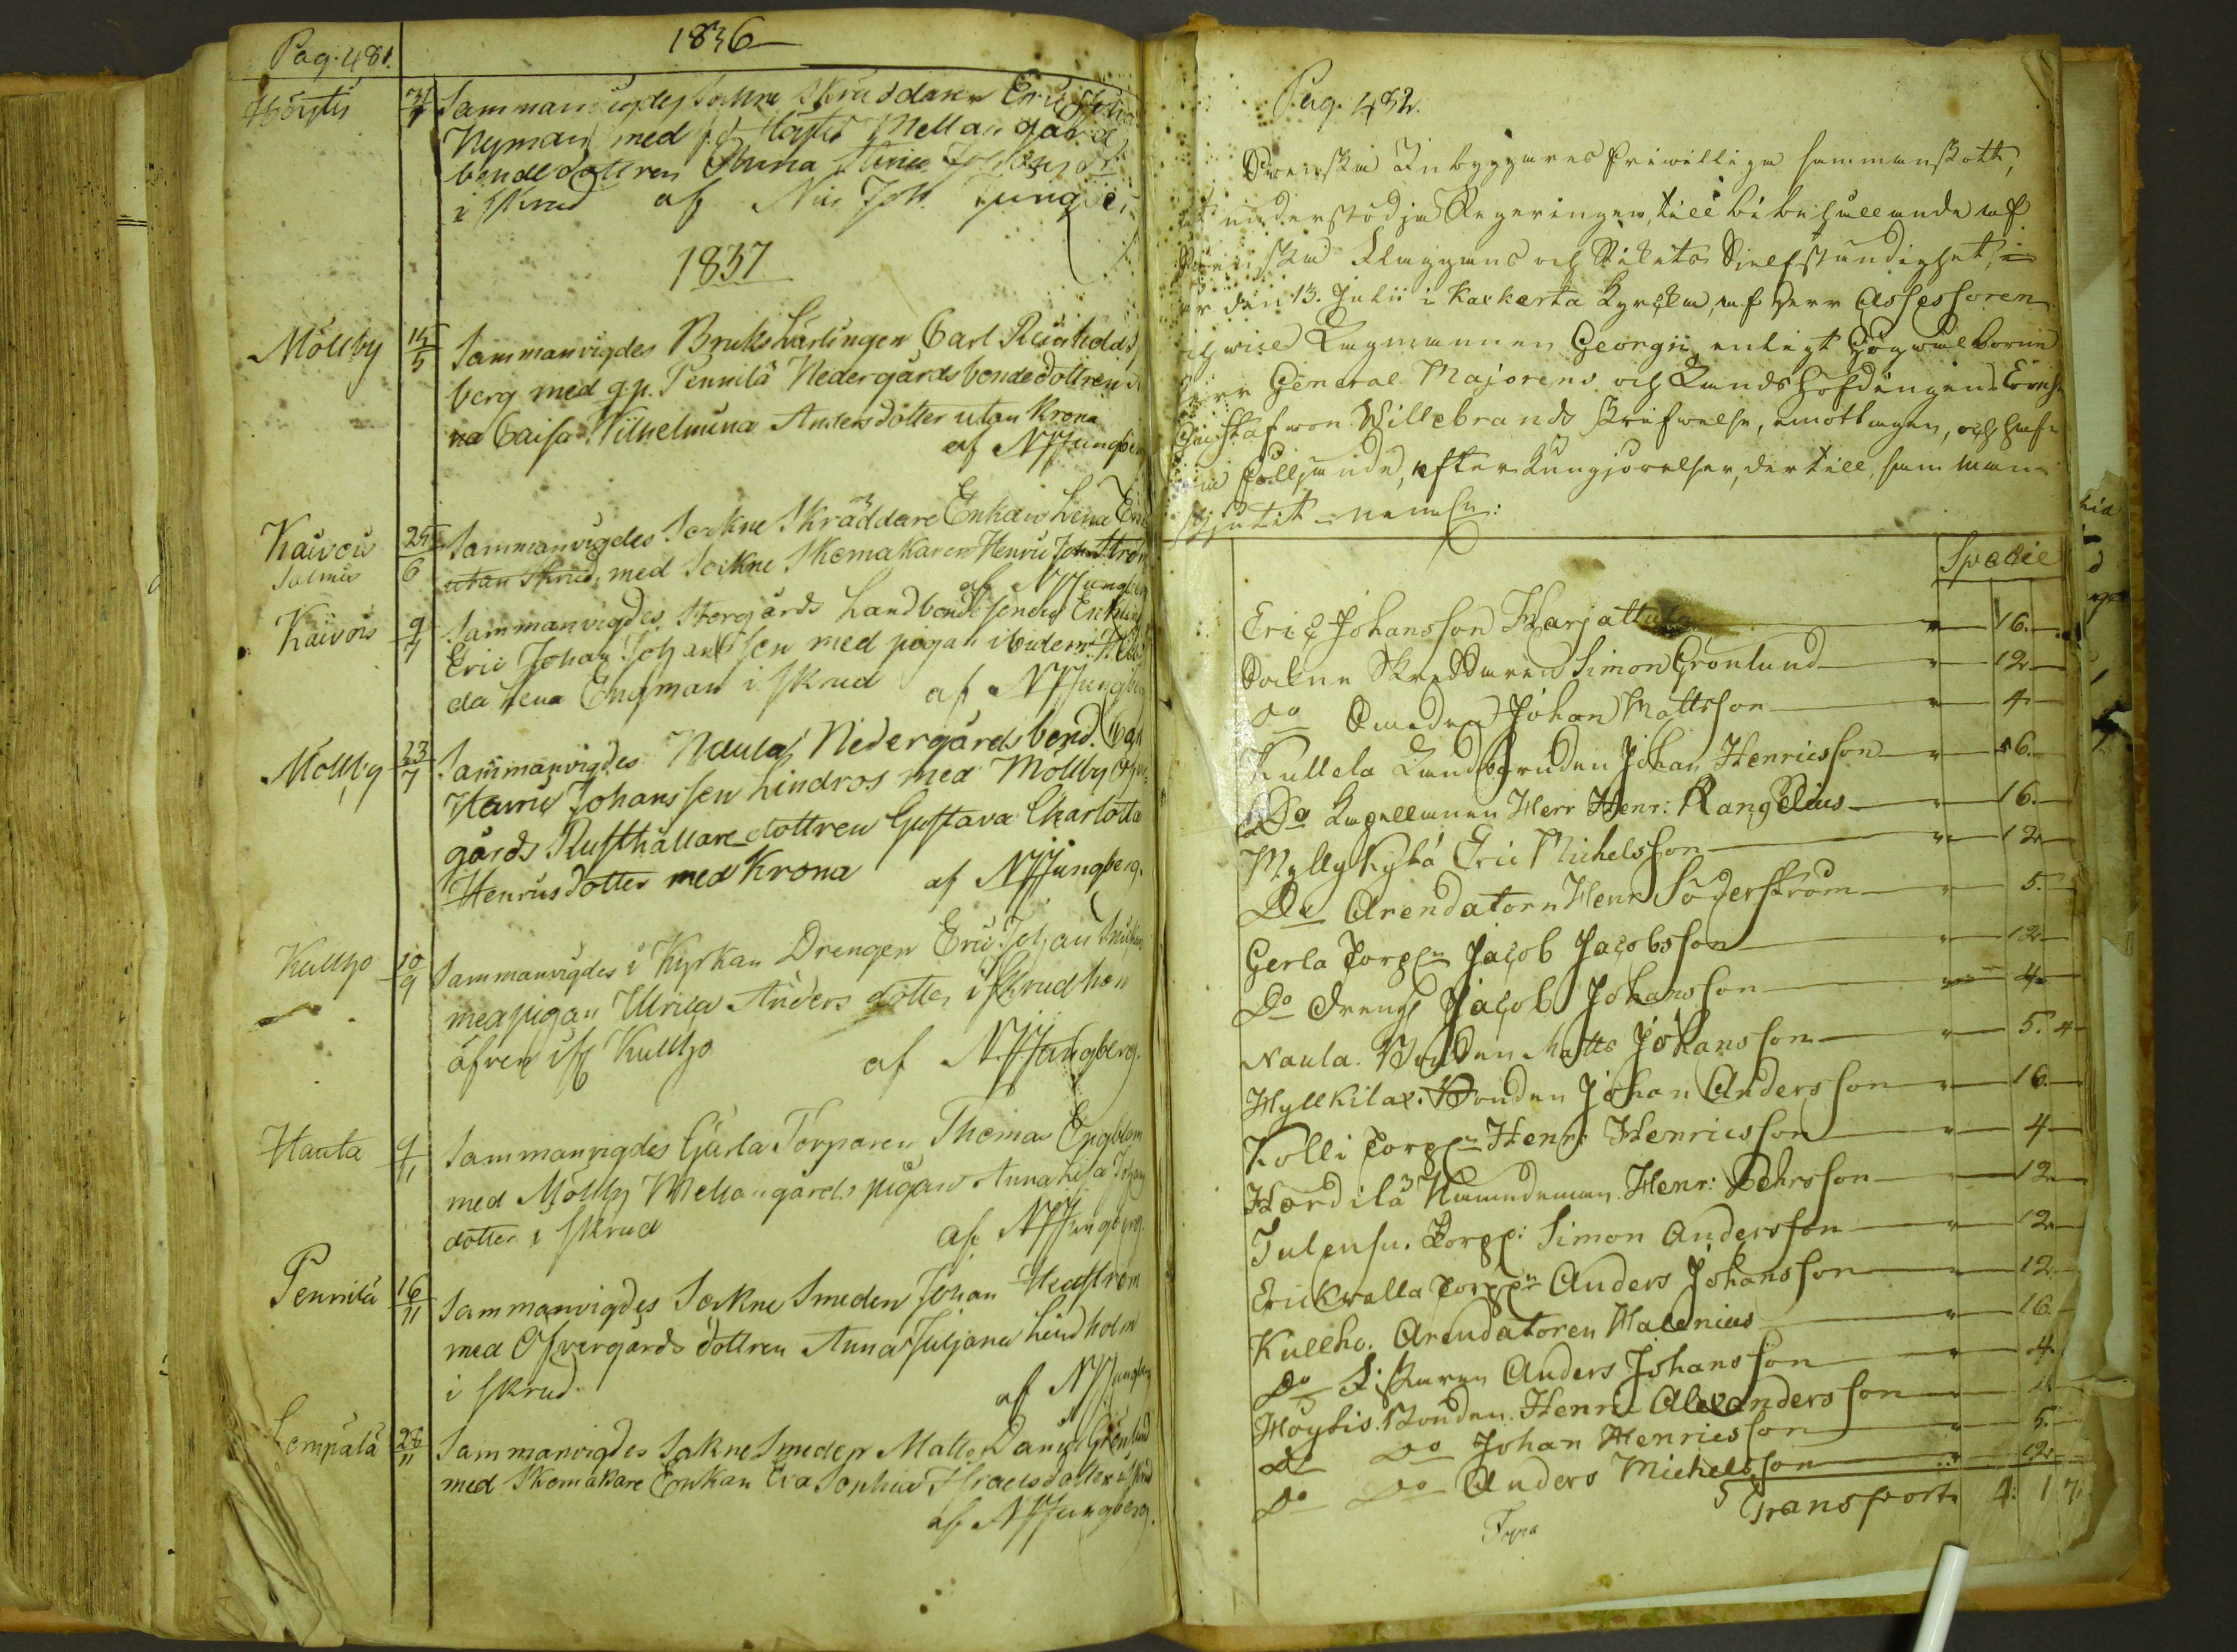 Pag. 481.
1836
Höytis 31/7 Sammanvigdes Sockne Skräddaren Eric Joha
Nyman med f.d. Höytis Mellangårds
bondedottren Anna Johansdr
i skrud af Nils Joh. Ljungbe
1837
Mölby 14/5 Sammanvigdes Bruks Lärlingen Carl
berg med g.p. Pennilä Nedergårds bondedottren
na Caisa Wilhelmina Andersdotter utan Krona
af NJLjungberg
Kaivois 25/6 Sammanvigdes Sockne Skräddare Enkan Lena Eri
Salmis utan skrud, med Sockne Skomakaren Henric Joh Ström
af NJLjungberg
Kaivois 9/7 Sammanvigdes Storgårds Landbonde sonen Enkling
Eric Johan Johansson med pigan ibidem
da Lena Engman i skrud af NJLjungberg
Mölby 23/7 Sammanvigdes Naula Nedergårds bond.
Henric Johansson Lindros med Mölby Öfver
gårds Rusthållare dottren Gustava Charlotta
Henricsdotter med Krona af NJLjungberg.
Kullho 10/9 Sammanvigdes i Kyrkan Drengen Eric Johan
med pigan Ulrica Anders dotter i skrud hon
äfven ifr Kullho af NJLjungberg.
Haata 9/11 Sammanvigdes Gärla Torparen Thomas Engblom
med Mölby Mellangårds pigan Anna Lisa Johans
dotter i skrud af NJLjungberg.
Pennilä 16/11 Sammanvigdes Sockne Smeden Johan Hedström
med Öfvergårds dottren Anna Juljana Lindholm
i skrud. af NJLjungberg
Lempälä 28/11 Sammanvigdes Sokne Smeden Matts Daniel Grönlund
med Skomakare Enkan Eva Sophia Israelsdotter i skrud
af NJLjungberg.
Pag. 482.
Swenska Inbyggares friwilliga sammanskott,
at understödja Regeringen, till bibehållande af
Swenska Flaggans och Rikets Sjelfständighet,
är den 13. Julii i Karkerta Kyrcka, af Herr Assessoren
och vice Lagmannen Georgii, enligt Högwälborne
Herr General Majorens och Landshöfdingens
Gustaf von Willebrands skrifwelse, emottagen, och haf
wa följande, efter Kungjörelser, der till, samman
skjutit nemln:
Specie
Eric Johansson Harjattula — " — 16.
Sockne Skreddaren Simon Grönlund — " — 12
Do Smeden Johan Mattsson — " — 4
Kullela Landbonden Johan Henricsson — " — 16.
Do Kapellanen Herr Henr: Rangelius — " — 16.
Myllykylä Eric Michelsson — " — 12
Do Arendatorn Henr Söderström — " — 5.
Gerla Torpn Jacob Jacobsson — " — 12
Do Dreng Jacob Johansson — " — 4
Naula. Bonden Matts Johansson — " — 5. 4
Hyllkilax. Bonden Johan Andersson — " — 16.
Kolli Torpn Henr Henricsson — " — 4
Hördilä Nämndeman. Henr: Pehrsson — " — 12
Torpp: Simon Andersson — " — 12
Erickvalla Torpn Anders Johansson — " — 12
Kullho. Arendatoren Malenius — " — 16.
Do Anders Johansson — " — 4.
Höytis. Bonden. Henr: Alexandersson — " — 4
Do Do Johan Henricsson — " — 5.
Do Do Anders Michelsson — " — 12
Transport 4: 17.